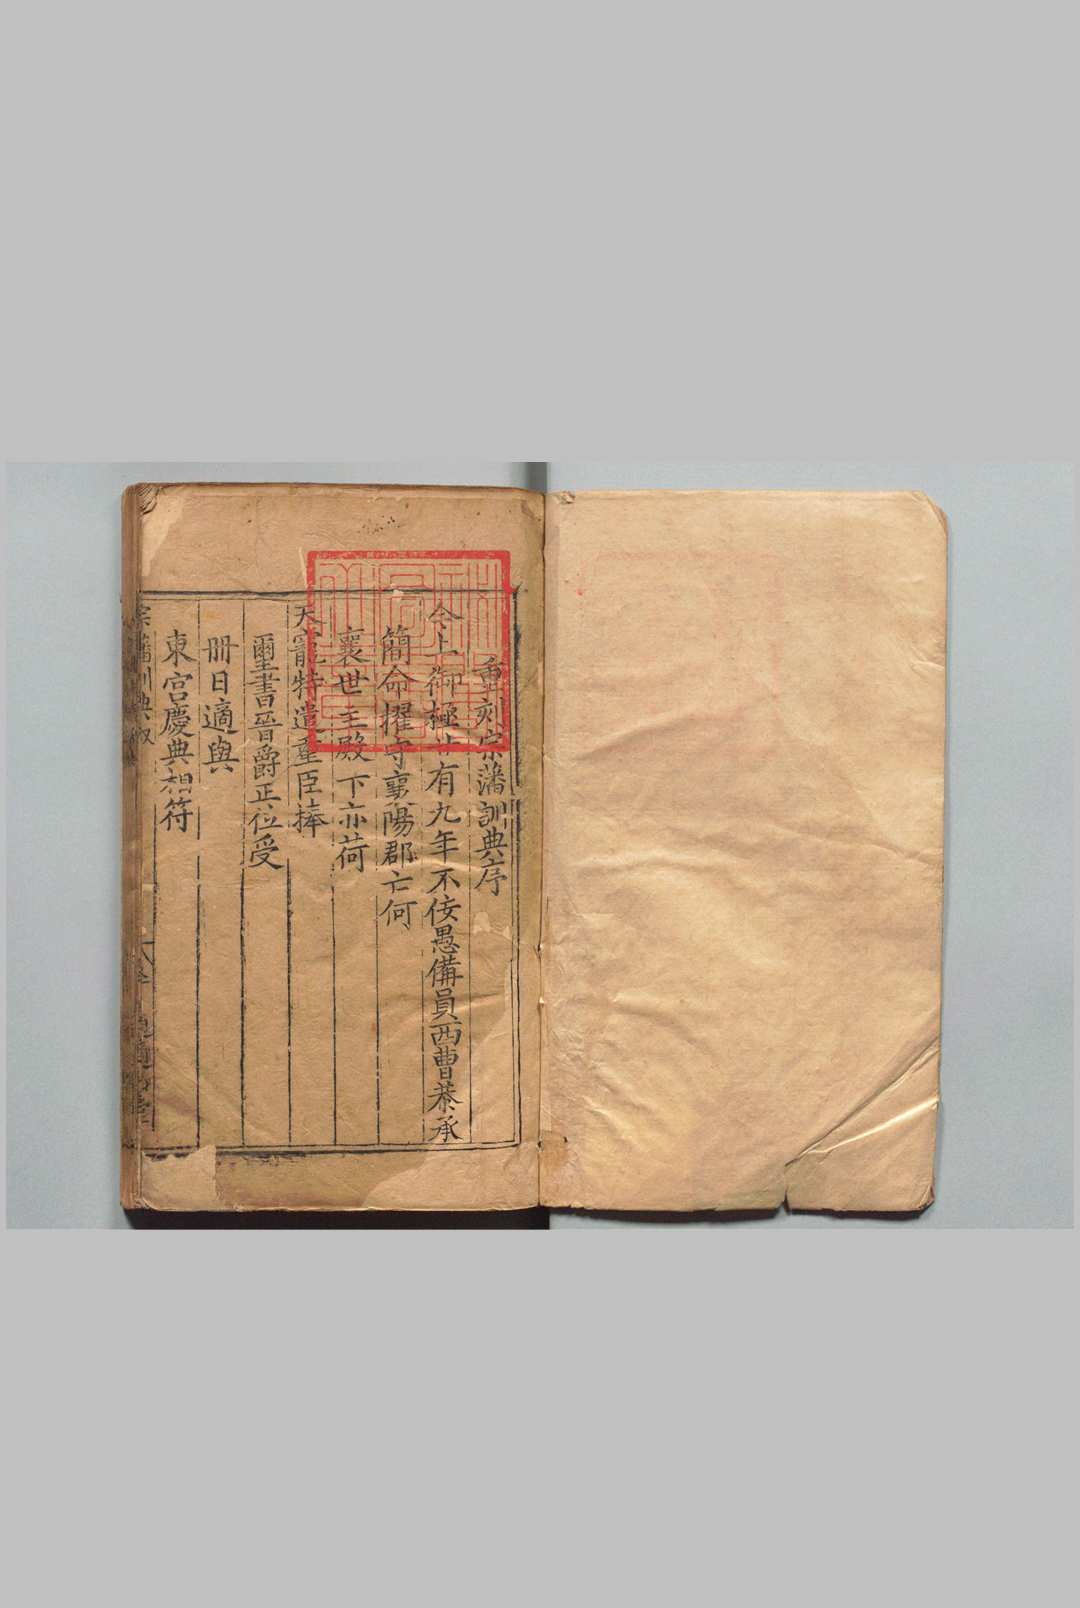 重刻宗藩訓典序
今上御極廿有九年不佞愚備員西曹恭承
簡命擢守襄陽郡亡何
襄世主殿下亦荷
天寵特遣重臣捧
璽書晉爵正位受
冊日適與
東宮慶典相符
宗藩訓典敘